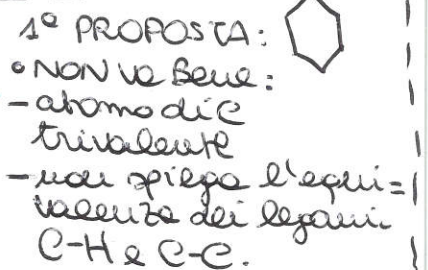 1ª PROPOSTA:
• NON va Bene:
- atomo di C
trivalente
- non spiega l'equi=
valenza dei legami
C-H e C-C.